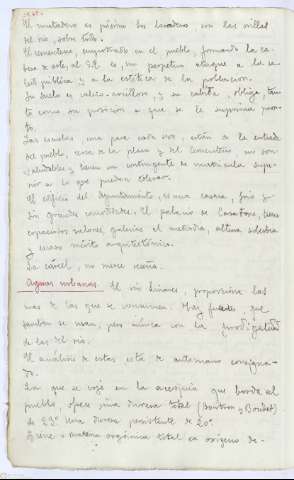 El matadero es pésimo. Los lavaderos son las orillas
del río, sobre todo.
El cementerio, empotrado en el pueblo, formando la ca-
beza de este, al SE. es, un perpetuo ataque a la sa-
lud pública y a la estética de la población.
Su suelo es calizo-arcilloso, y su cabida, obliga, tan-
to como su posición a que se le suprima pron-
to.
Las escuelas una para cada sexo, están a la entrada
del pueblo, cerca de la plaza y del Cementerio no son
saludables y tienen un contingente de matrícula supe-
rior a lo que pueden tolerar.
El edificio del Ayuntamiento, es una casona, frío y
sin grandes comodidades. El palacio de Casafons, tiene
espaciosos salones, galerías al mediodía, altura soberbia
y escaso mérito arquitectónico.
La cárcel, no merece reseña.
Aguas urbanas. El río Linares, proporciona las
mas de las que se consumen. Hay fuentes, que
tambien se usan, pero nunca con la prodigalidad
de las del río.
El análisis de estas está de antemano consigna-
do.
La que se coge en la acequia que bordea al
pueblo, ofrece una dureza total (Boutron y Boudet)
de 23º. Una dureza persistente de 20º.
Tiene: materia orgánica total en oxígeno de-